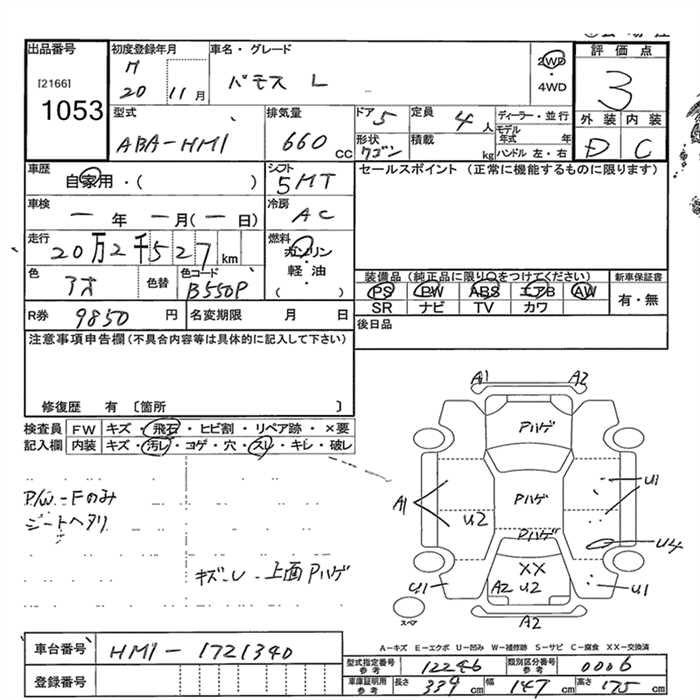 出品番号
[2166]
1053
初度登録年月
H 20 11 月
車名・グレード
バモス L
2WD
・
4WD
評価点
3
型式
ABA-HM1
排気量
660 cc
ドア 5
定員 4 人
形状 ワゴン
積載 kg
ディーラー・並行
モデル年式 年
ハンドル 左・右
外装 内装
D C
車歴
自家用・( )
シフト
5MT
セールスポイント (正常に機能するものに限ります)
車検
― 年 ― 月(― 日)
冷房
AC
走行
20万2千527 km
燃料
ガソリン
軽・油
( )
色
アオ
色替
色コード
B550P
装備品 (純正品に限り○をつけてください)
PS PW ABS エアB AW
SR ナビ TV カワ
新車保証書
有・無
R券 9850 円
名変期限 月 日
後日品
注意事項申告欄(不具合内容等は具体的に記入して下さい)
修復歴 有 〔箇所 〕
検査員
記入欄
FW キズ・飛石・ヒビ割・リペア跡・×要
内装 キズ・汚レ・コゲ・穴・スレ・キレ・破レ
P/W-Fのみ
シートヘタリ
キズ-U-上面Pハゲ
A1 A2
Pハゲ
A1 U2 Pハゲ U1
Pハゲ
U4
XX
U1 A2 U2 U1
スペア
A2
A-キズ E-エクボ U-凹み W-補修跡 S-サビ C-腐食 XX-交換済
車台番号 HM1-1721340
登録番号
型式指定番号 参考 12246
類別区分番号 参考 0006
車庫証明用 参考 長さ 339 cm 幅 147 cm 高さ 175 cm